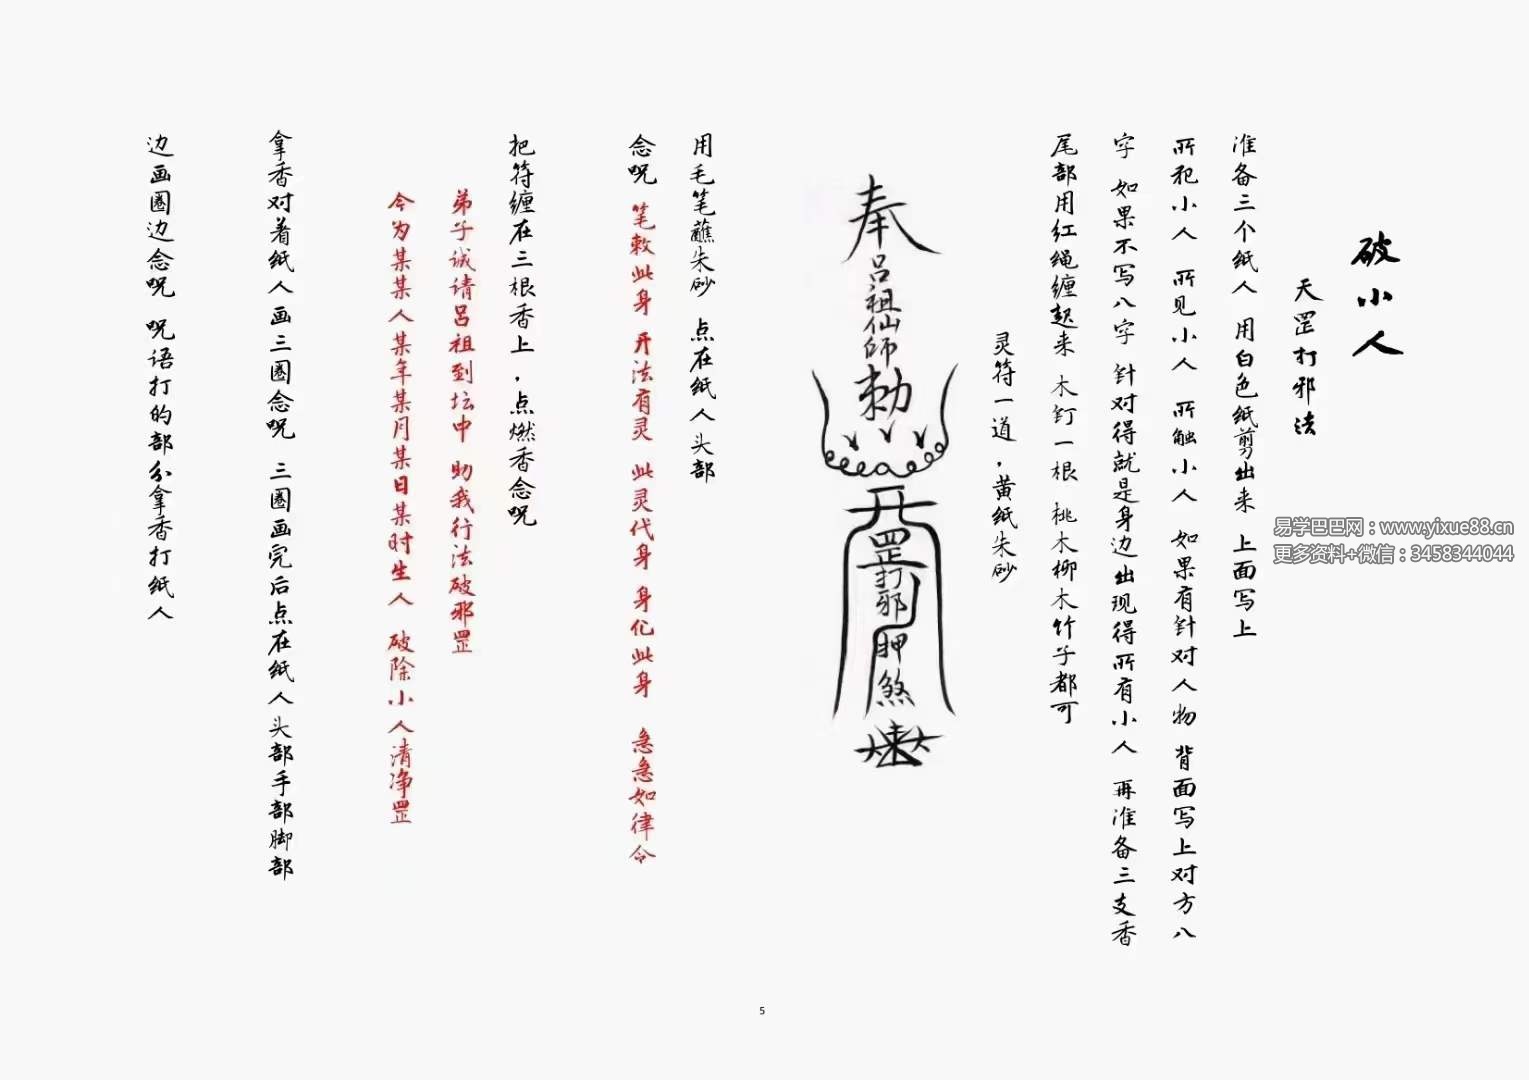 破小人
天罡打邪法
准备三个纸人 用白色纸剪出来 上面写上
所犯小人 所见小人 所触小人 如果有针对人物 背面写上对方八
字 如果不写八字 针对得就是身边出现得所有小人 再准备三支香
尾部用红绳缠起来 木钉一根 桃木柳木竹子都可
灵符一道,黄纸朱砂
奉
吕祖仙師
勅
开
罡打邪押煞
用毛笔蘸朱砂 点在纸人头部
念咒 笔敕此身 开法有灵 此灵代身 身化此身 急急如律令
把符缠在三根香上,点燃香念咒
弟子诚请吕祖到坛中 助我行法破邪罡
今为某某人某年某月某日某时生人 破除小人清净罡
拿香对着纸人画三圈念咒 三圈画完后点在纸人头部手部脚部
边画圈边念咒 咒语打的部分拿香打纸人
易学巴巴网:www.yixue88.cn
更多资料+微信:3458344044
5